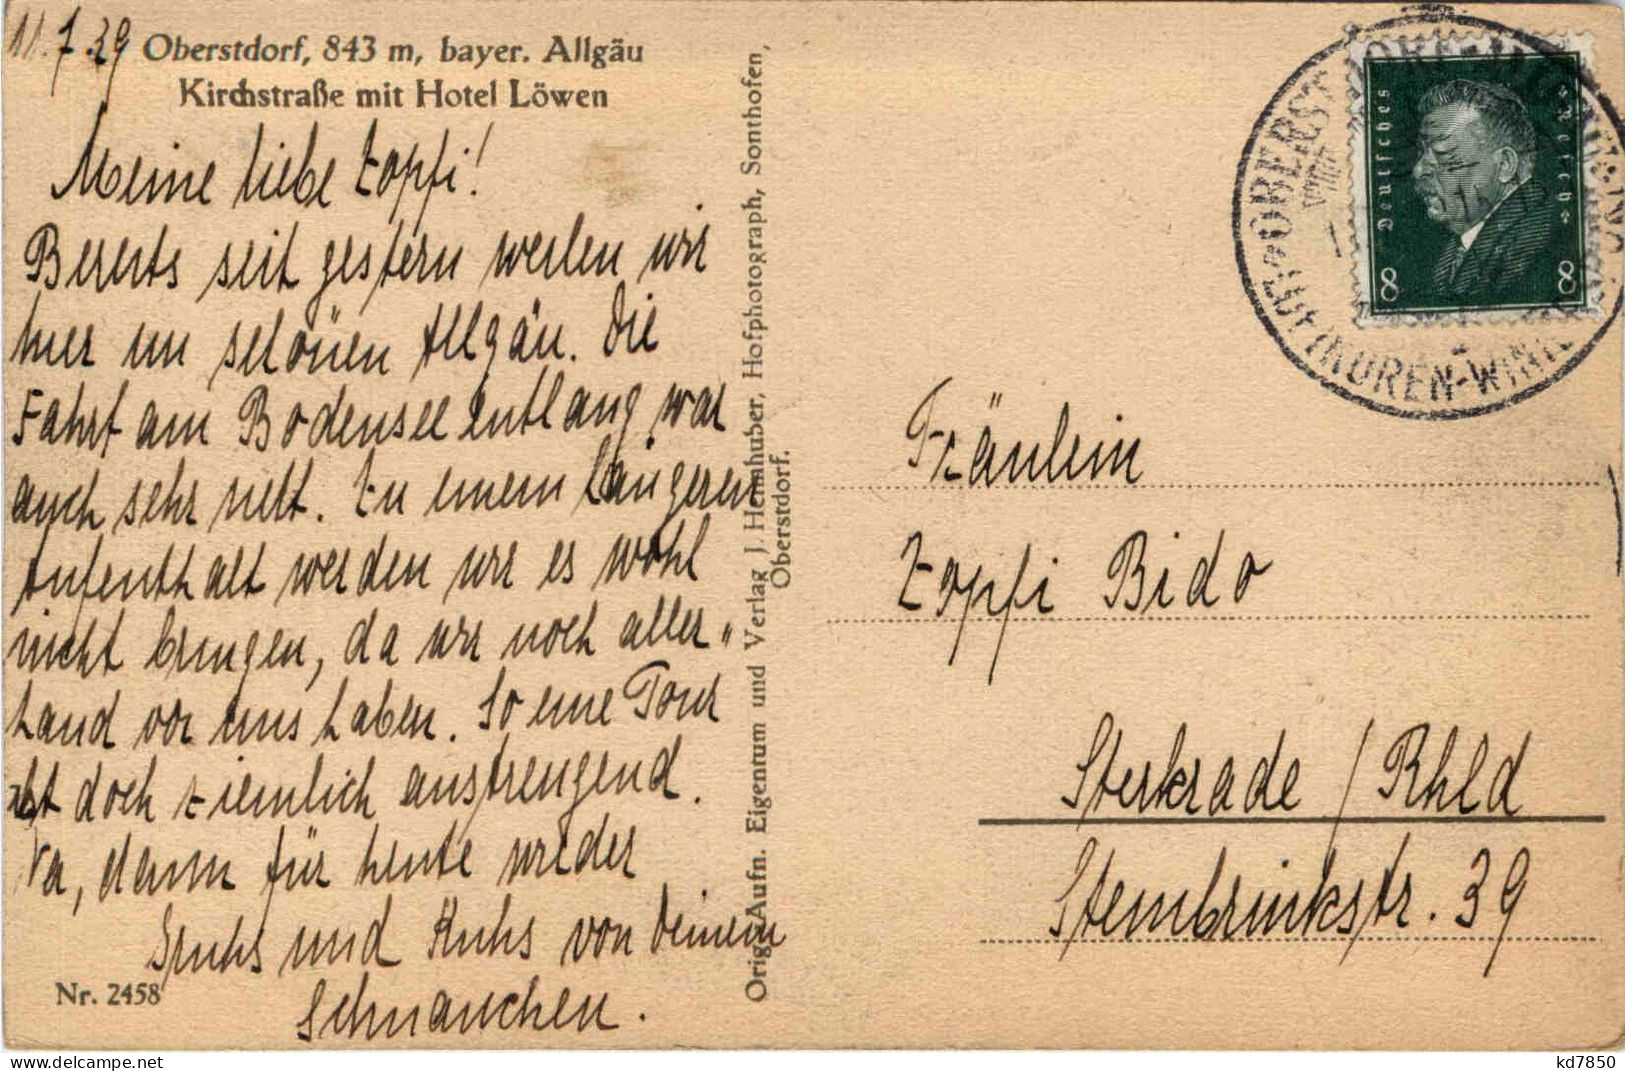 11.7.29
Oberstdorf, 843 m, bayer. Allgäu
Kirchstraße mit Hotel Löwen
Meine liebe Zopfi!
Bereits seit gestern weilen wir
hier im schönen Allgäu. Die
Fahrt am Bodensee entlang war
auch sehr nett. Zu einem längeren
Aufenthalt werden wir es wohl
nicht bringen, da wir noch aller„
hand vor uns haben. So eine Tour
ist doch ziemlich anstrengend.
Na, dann für heute wieder
Gruhs und Kuhs von Deinem
Schnauchen.
Nr. 2458
Orig. Aufn. Eigentum und Verlag J. Heimhuber, Hofphotograph, Sonthofen,
Oberstdorf.
Deutsches Reich
8 8
OBERSTDORF
Fräulein
Zopfi Bido
Sterkrade / Rhld
Steinbrinkstr. 39
kd7850